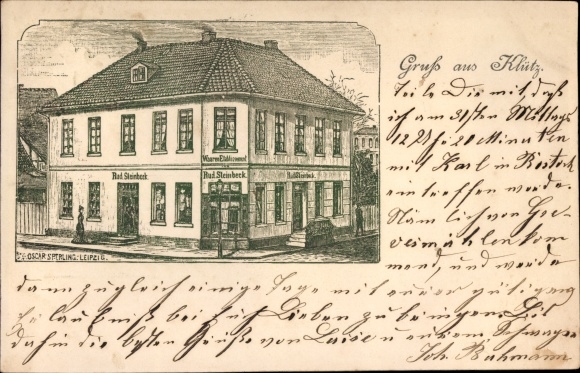 Gruß aus Klütz.
Waaren Etablissement
Rud. Steinbeck.
Rud. Steinbeck.
Rud. Steinbeck.
OSCAR SPERLING. LEIPZIG.
Teile Dir mit, daß
ich am 31sten Mittags
12 Uhr 20 Minuten
mit Karl in Rostock
eintreffen werde.
Nämlich von Gre-
vesmühlen kom-
mend, und werde
dann zugleich einige Tage mit eurer gütigen
Erlaubniß bei euch Lieben zubringen. Bis
dahin die besten Grüße von Luise u eurem Schwager
Joh. Bahmann